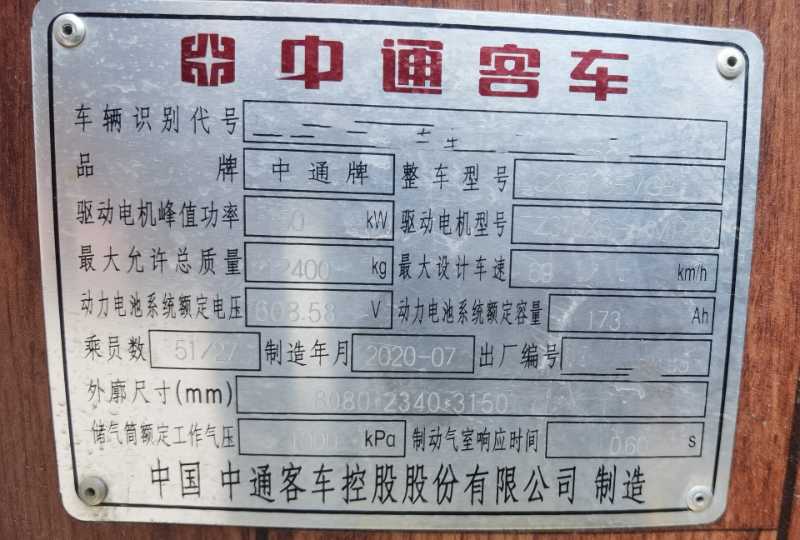 中通客车
车辆识别代号
品牌 中通牌 整车型号
驱动电机峰值功率 kW 驱动电机型号
最大允许总质量 12400 kg 最大设计车速 69 km/h
动力电池系统额定电压 608.58 V 动力电池系统额定容量 173 Ah
乘员数 51/27 制造年月 2020-07 出厂编号
外廓尺寸(mm) 8080×2340×3150
储气筒额定工作气压 kPa 制动气室响应时间 0.60 s
中国 中通客车控股股份有限公司 制造